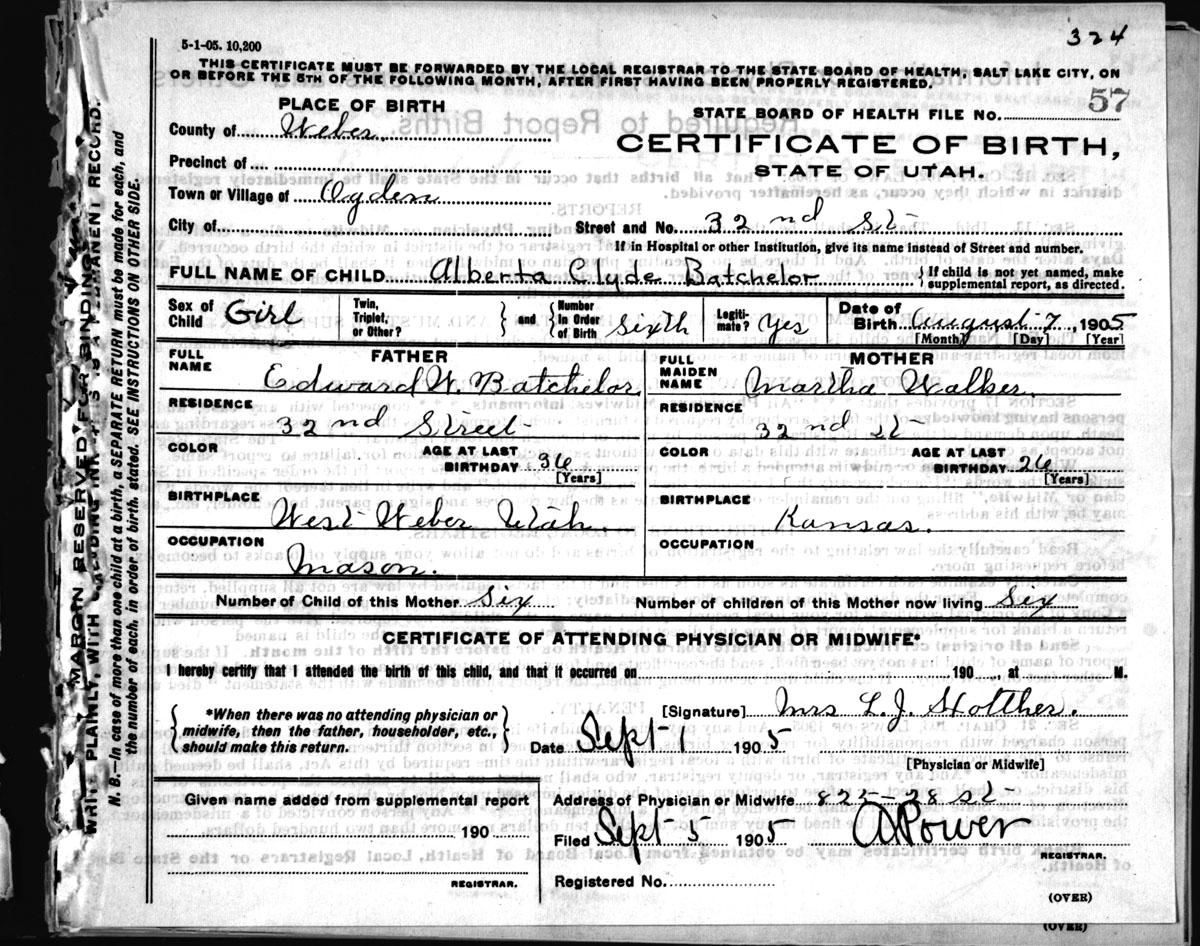 324
5-1-05. 10,200
THIS CERTIFICATE MUST BE FORWARDED BY THE LOCAL REGISTRAR TO THE STATE BOARD OF HEALTH, SALT LAKE CITY, ON
OR BEFORE THE 5TH OF THE FOLLOWING MONTH, AFTER FIRST HAVING BEEN PROPERLY REGISTERED.
PLACE OF BIRTH
STATE BOARD OF HEALTH FILE NO. 57
County of Weber
CERTIFICATE OF BIRTH,
Precinct of
STATE OF UTAH.
Town or Village of Ogden
City of
Street and No. 32nd St
If in Hospital or other Institution, give its name instead of Street and number.
FULL NAME OF CHILD Alberta Clyde Batchelor
If child is not yet named, make
supplemental report, as directed.
Sex of Child Girl
Twin, Triplet, or Other?
and
Number In Order of Birth Sixth
Legiti-mate? Yes
Date of Birth August 7, 1905
[Month] [Day] [Year]
FATHER
FULL NAME Edward W. Batchelor
RESIDENCE
32nd Street
COLOR
AGE AT LAST BIRTHDAY 36
[Years]
BIRTHPLACE
West Weber Utah.
OCCUPATION
Mason.
MOTHER
FULL MAIDEN NAME Martha Walker
RESIDENCE
32nd St
COLOR
AGE AT LAST BIRTHDAY 26
[Years]
BIRTHPLACE
Kansas.
OCCUPATION
Number of Child of this Mother Six
Number of children of this Mother now living Six
CERTIFICATE OF ATTENDING PHYSICIAN OR MIDWIFE*
I hereby certify that I attended the birth of this child, and that it occurred on 190 , at M.
*When there was no attending physician or
midwife, then the father, householder, etc.,
should make this return.
[Signature] Mrs L. J.
Date Sept 1 1905
[Physician or Midwife]
Given name added from supplemental report
190
REGISTRAR.
Address of Physician or Midwife 822-28 St
Filed Sept 5 1905 A Power
REGISTRAR.
Registered No.
(OVER)
(OVER)
MARGIN RESERVED FOR BINDING.
WRITE PLAINLY, WITH INK THIS IS A PERMANENT RECORD.
N. B.—In case of more than one child at a birth, a SEPARATE RETURN must be made for each, and
the number of each, in order of birth, stated. SEE INSTRUCTIONS ON OTHER SIDE.